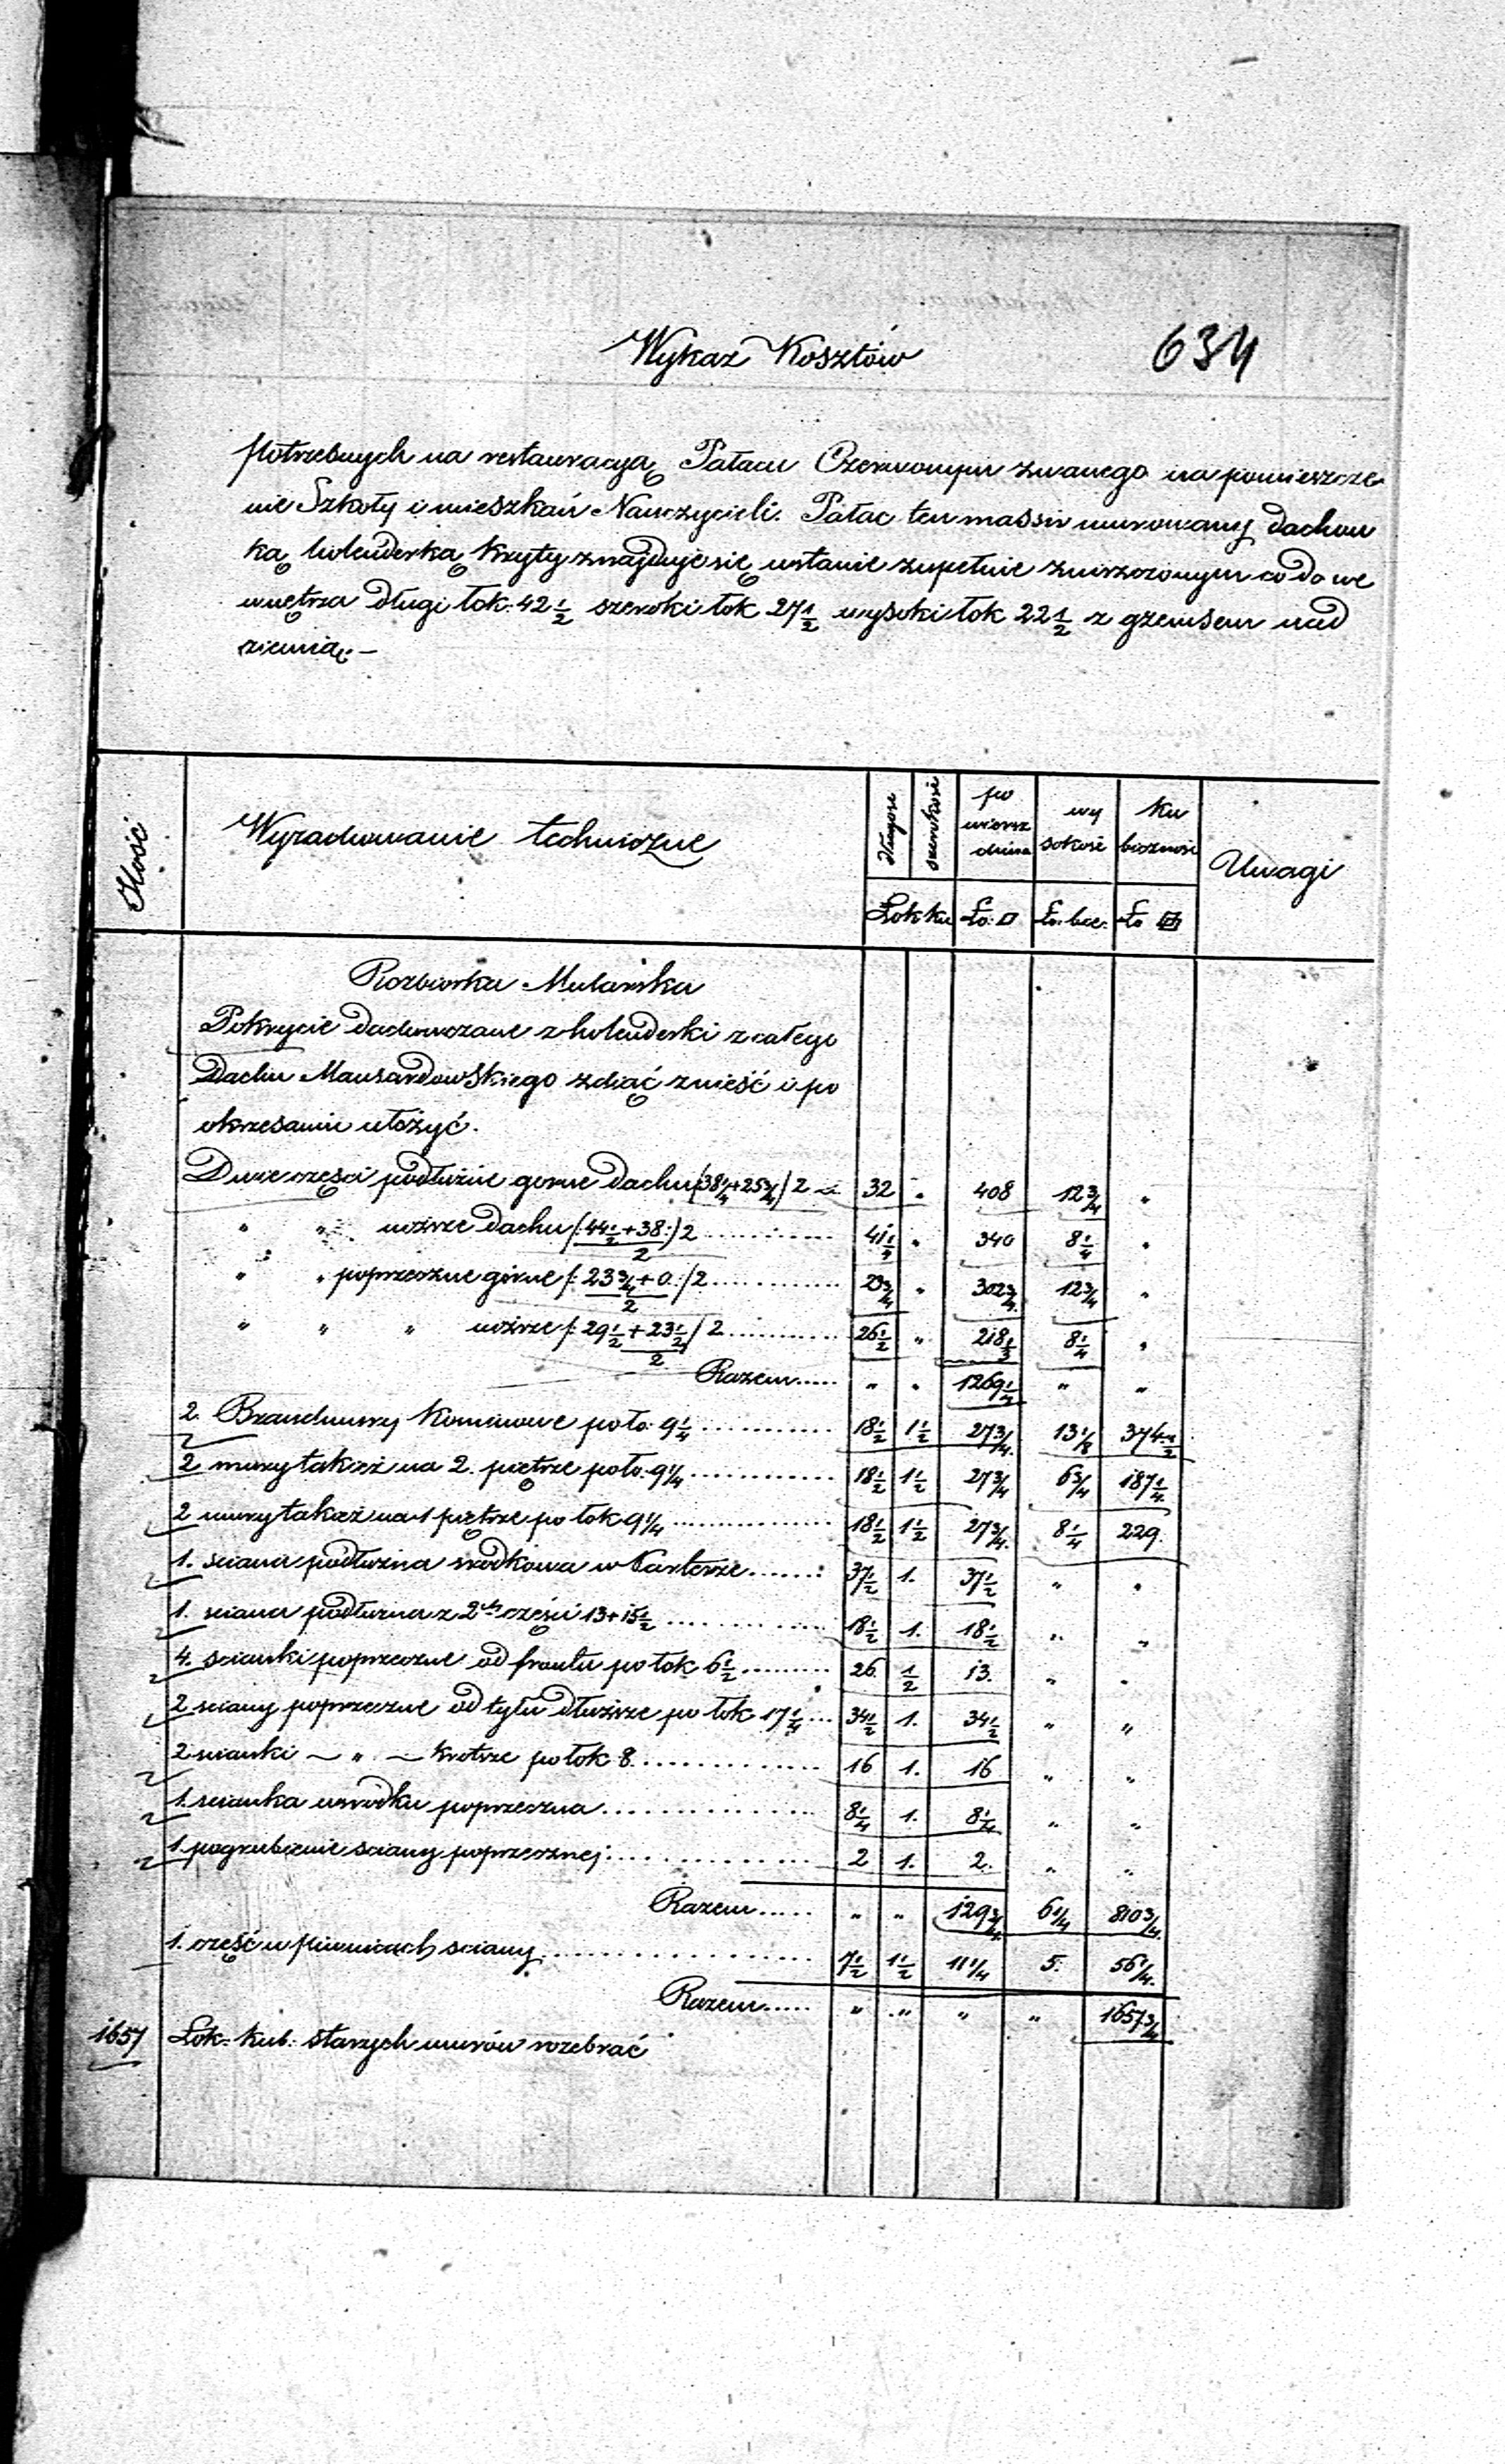 Wykaz Kosztów 634
potrzebnych na restauracyą Pałacu Czerwonym zwanego na pomieszcze
nie Szkoły i mieszkań Nauczycieli. Pałac ten massiv murowany dachow
ką holenderką kryty znajduje się w stanie zupełnie zniszczonym co do we
wnętrza długi łok. 42 1/2 szeroki łok 27 1/2 wysoki łok 22 1/2 z gzemsem nad
ziemią. —
Ilość Wyrachowanie techniczne długość szerokość po wierz chnia wy sokość ku biczność Uwagi
Łokku Ło: □ Ło. bie: Ło
Rozbiorka Mularska
Pokrycie dachowczane z holenderki z całego
Dachu Mansardowskiego zdiąć znieść i po
okrzesaniu ułożyć.
Dwie części podłużne gorne dachu (38 1/4 + 25 3/4) 2 32 „ 408 12 3/4 „
„ „ niższe dachu (: 44 1/2 + 38 :) 2 .......... 41 1/4 „ 340 8 1/4 „
2
„ „ poprzeczne górne (: 23 3/4 + 0 :) 2 .......... 23 3/4 „ 302 3/4 12 3/4 „
2
„ „ „ niższe (: 29 1/2 + 23 1/2) 2 .......... 26 1/2 „ 218 1/3 8 1/4 „
2
Razem..... „ „ 1269 1/4 „ „
2. Brandmury kominowe po ło. 9 1/4 .......... 18 1/2 1 1/2 27 3/4 13 1/2 374 1/2
2 mury takież na 2. piętrze po ło. 9 1/4 .......... 18 1/2 1 1/2 27 3/4 6 3/4 187 1/4
2 mury takież na 1 piętrze po łok 9 1/4 .......... 18 1/2 1 1/2 27 3/4 8 1/4 229.
1. sciana podłużna srodkowa w Parterze ...... 37 1/2 1. 37 1/2 „ „
1. sciana podłużna z 2ch części 13 + 15 1/2 .......... 18 1/2 1. 18 1/2 „ „
4. scianki poprzeczne od frontu po łok 6 1/2 ......... 26 1/2 13. „ „
2 sciany poprzeczne od tyłu dłuższe po łok 17 1/4 ... 34 1/2 1. 34 1/2 „ „
2 scianki — „ — krótsze po łok 8. .......... 16 1. 16 „ „
1. scianka w srodku poprzeczna .......... 8 1/4 1. 8 1/4 „ „
1 pogrubienie sciany poprzecznej .......... 2 1. 2. „ „
Razem..... „ „ 129 3/4 6 1/4 810 3/4
1. część w piwnicach sciany .......... 7 1/2 1 1/2 11 1/4 5. 56 1/4.
Razem..... „ „ „ „ 1657 3/4
1657 Łok: Kub: starych murów rozebrać